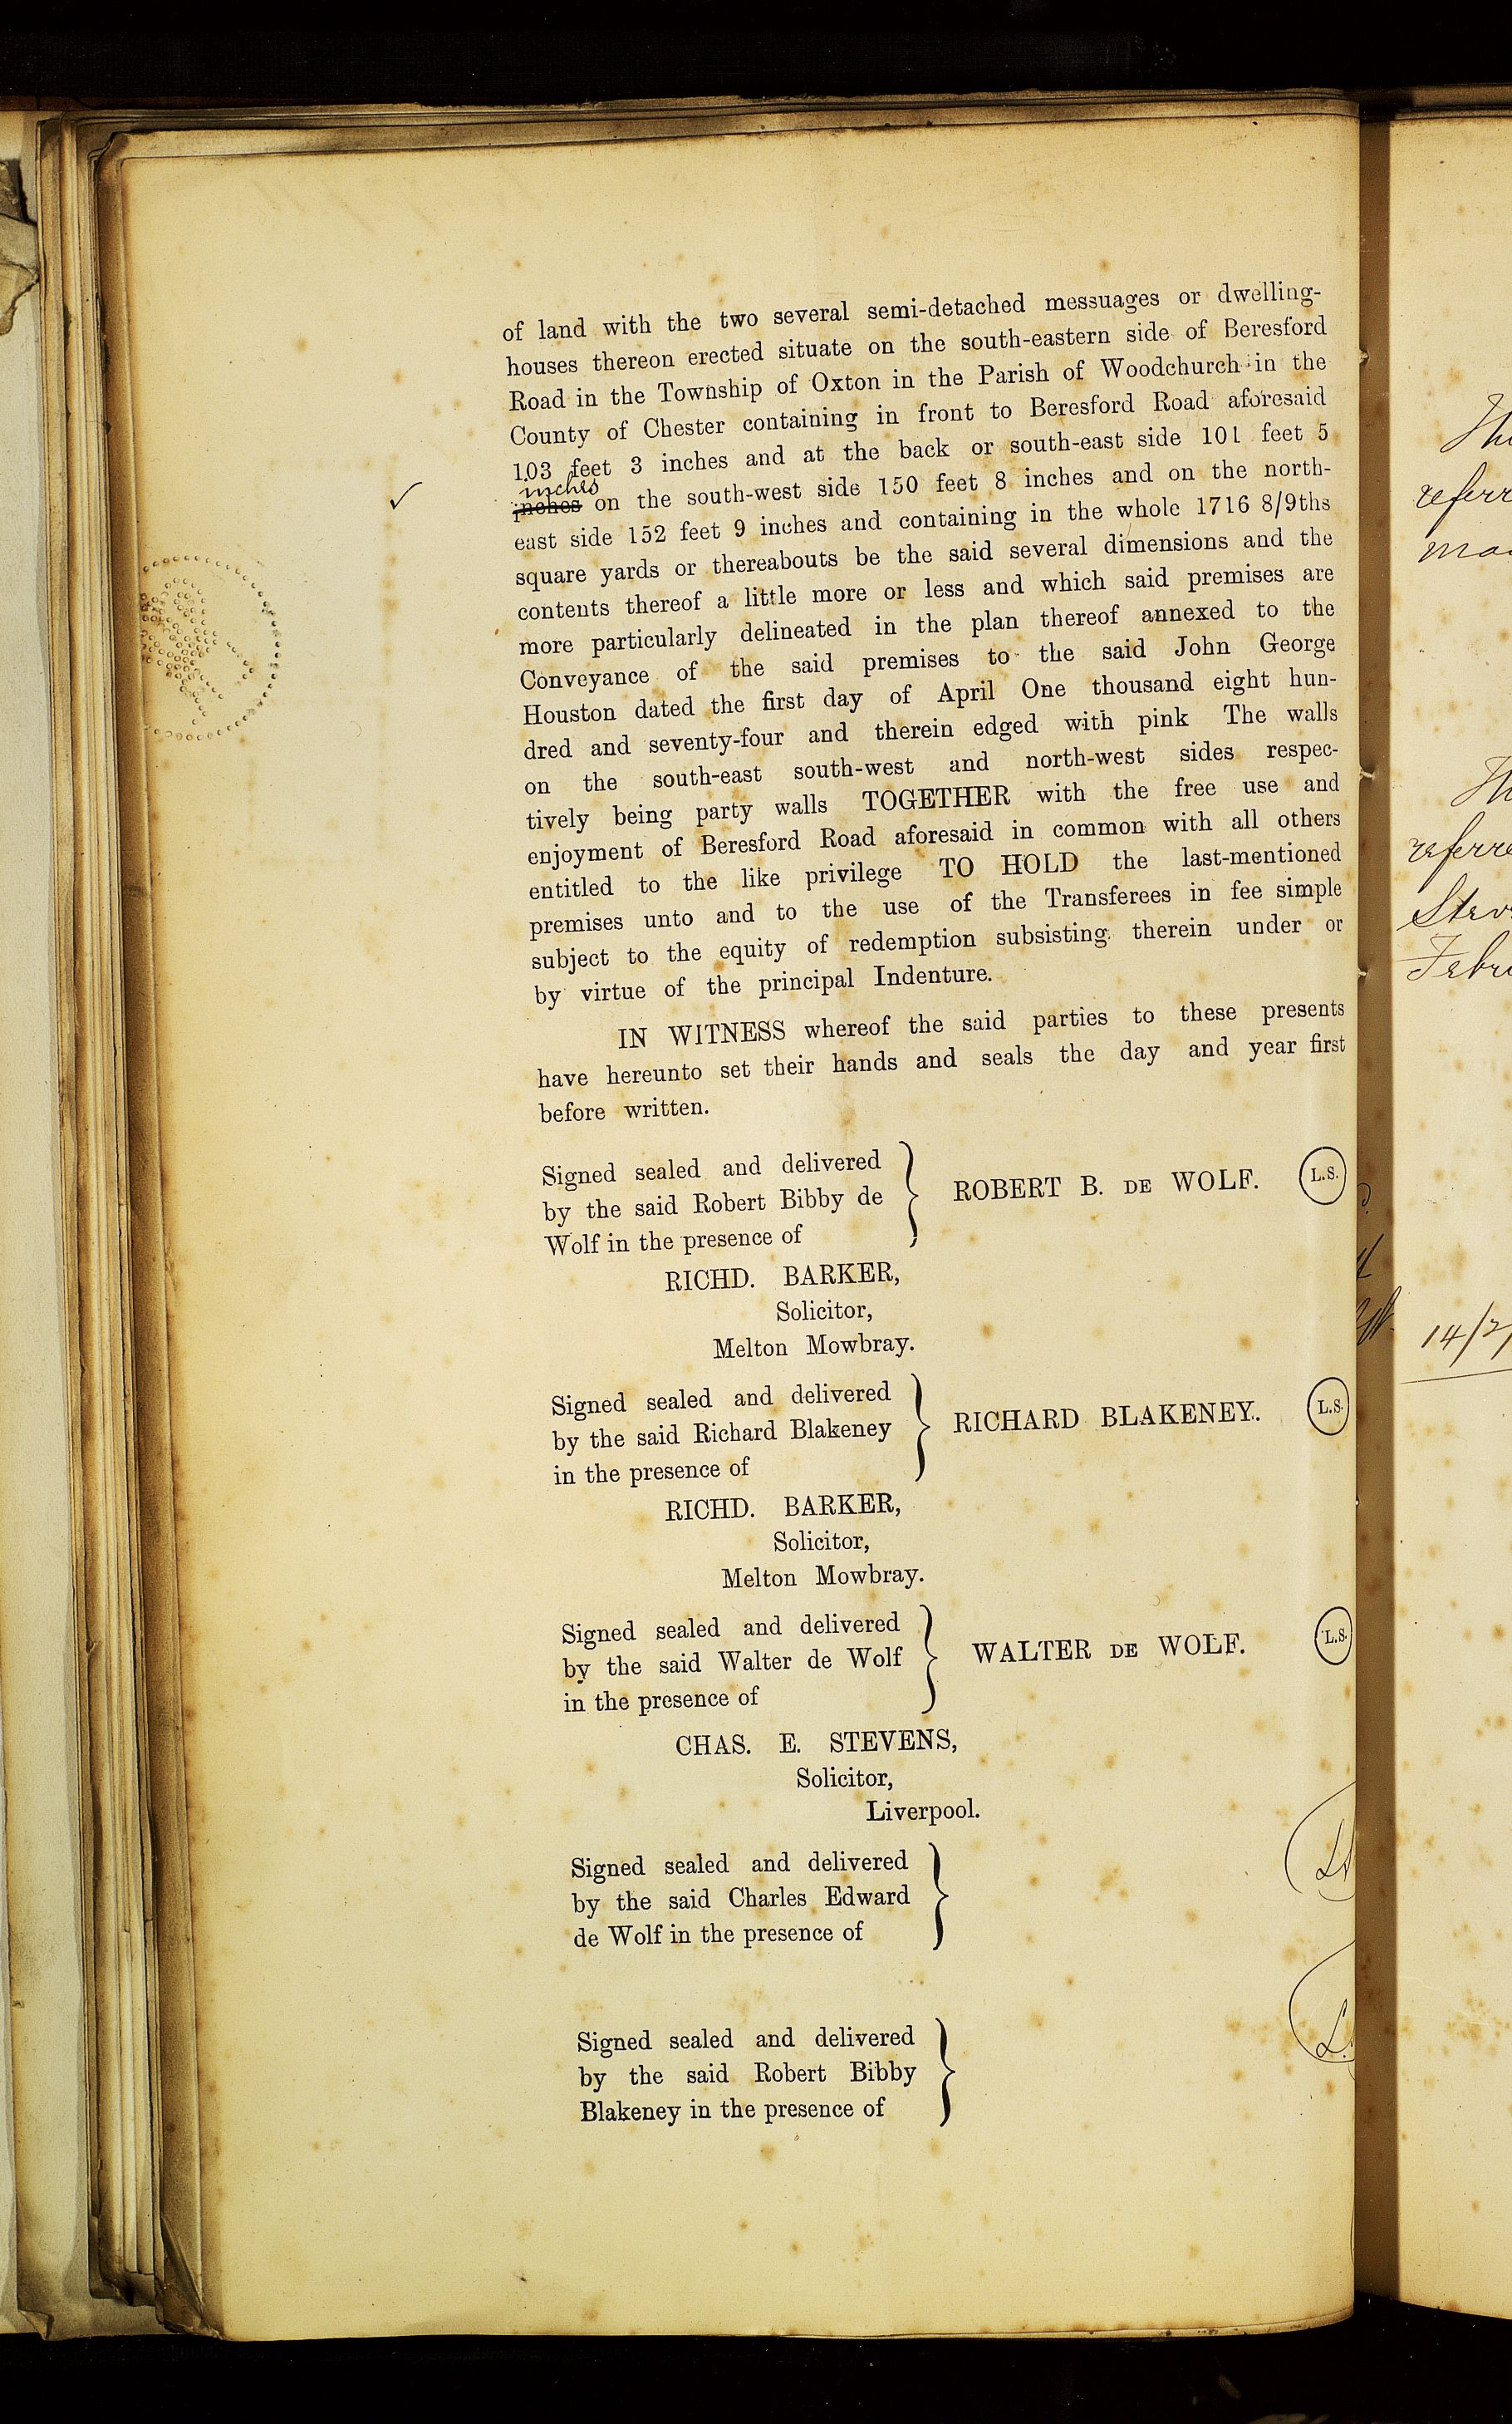 of land with the two several semi-detached messuages or dwelling-
houses thereon erected situate on the south-eastern side of Beresford
Road in the Township of Oxton in the Parish of Woodchurch in the
County of Chester containing in front to Beresford Road aforesaid
103 feet 3 inches and at the back or south-east side 101 feet 5
inches
inches on the south-west side 150 feet 8 inches and on the north-
east side 152 feet 9 inches and containing in the whole 1716 8/9ths
square yards or thereabouts be the said several dimensions and the
contents thereof a little more or less and which said premises are
more particularly delineated in the plan thereof annexed to the
Conveyance of the said premises to the said John George
Houston dated the first day of April One thousand eight hun-
dred and seventy-four and therein edged with pink The walls
on the south-east south-west and north-west sides respec-
tively being party walls TOGETHER with the free use and
enjoyment of Beresford Road aforesaid in common with all others
entitled to the like privilege TO HOLD the last-mentioned
premises unto and to the use of the Transferees in fee simple
subject to the equity of redemption subsisting therein under or
by virtue of the principal Indenture.
IN WITNESS whereof the said parties to these presents
have hereunto set their hands and seals the day and year first
before written.
Signed sealed and delivered
by the said Robert Bibby de
Wolf in the presence of
ROBERT B. DE WOLF. L.S.
RICHD. BARKER,
Solicitor,
Melton Mowbray.
Signed sealed and delivered
by the said Richard Blakeney
in the presence of
RICHARD BLAKENEY. L.S.
RICHD. BARKER,
Solicitor,
Melton Mowbray.
Signed sealed and delivered
by the said Walter de Wolf
in the presence of
WALTER DE WOLF. L.S.
CHAS. E. STEVENS,
Solicitor,
Liverpool.
Signed sealed and delivered
by the said Charles Edward
de Wolf in the presence of
Signed sealed and delivered
by the said Robert Bibby
Blakeney in the presence of